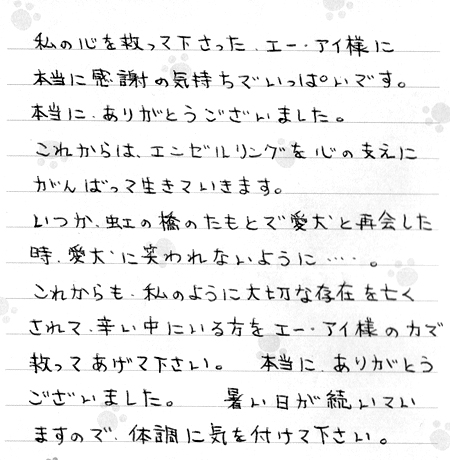 私の心を救って下さった、エー・アイ様に
本当に感謝の気持ちでいっぱいです。
本当に、ありがとうございました。
これからは、エンゼルリングを心の支えに
がんばって生きていきます。
いつか、虹の橋のたもとで愛犬と再会した
時、愛犬に笑われないように・・・。
これからも、私のように大切な存在を亡く
されて、辛い中にいる方をエー・アイ様の力で
救ってあげて下さい。 本当に、ありがとう
ございました。 暑い日が続いてい
ますので、体調に気を付けて下さい。